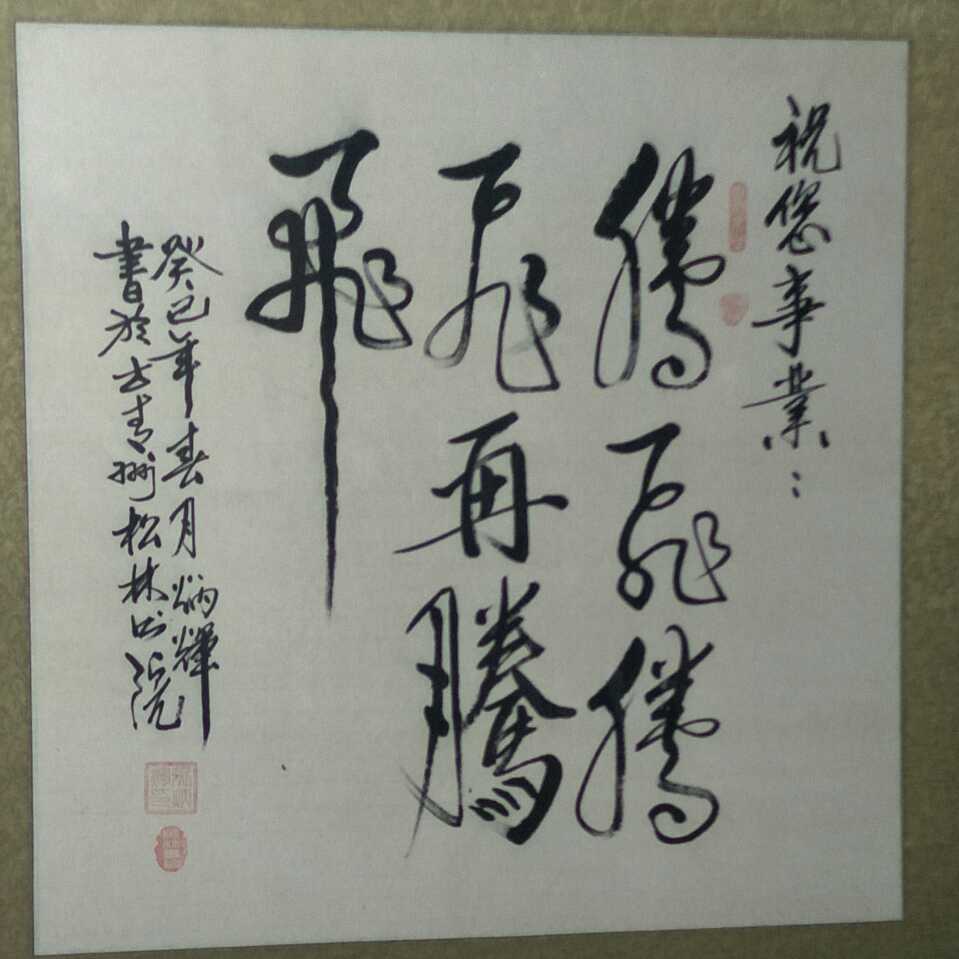 祝您事業：
騰飛騰
飛再騰
飛
癸巳年春月炳輝
書於古青州松林書院